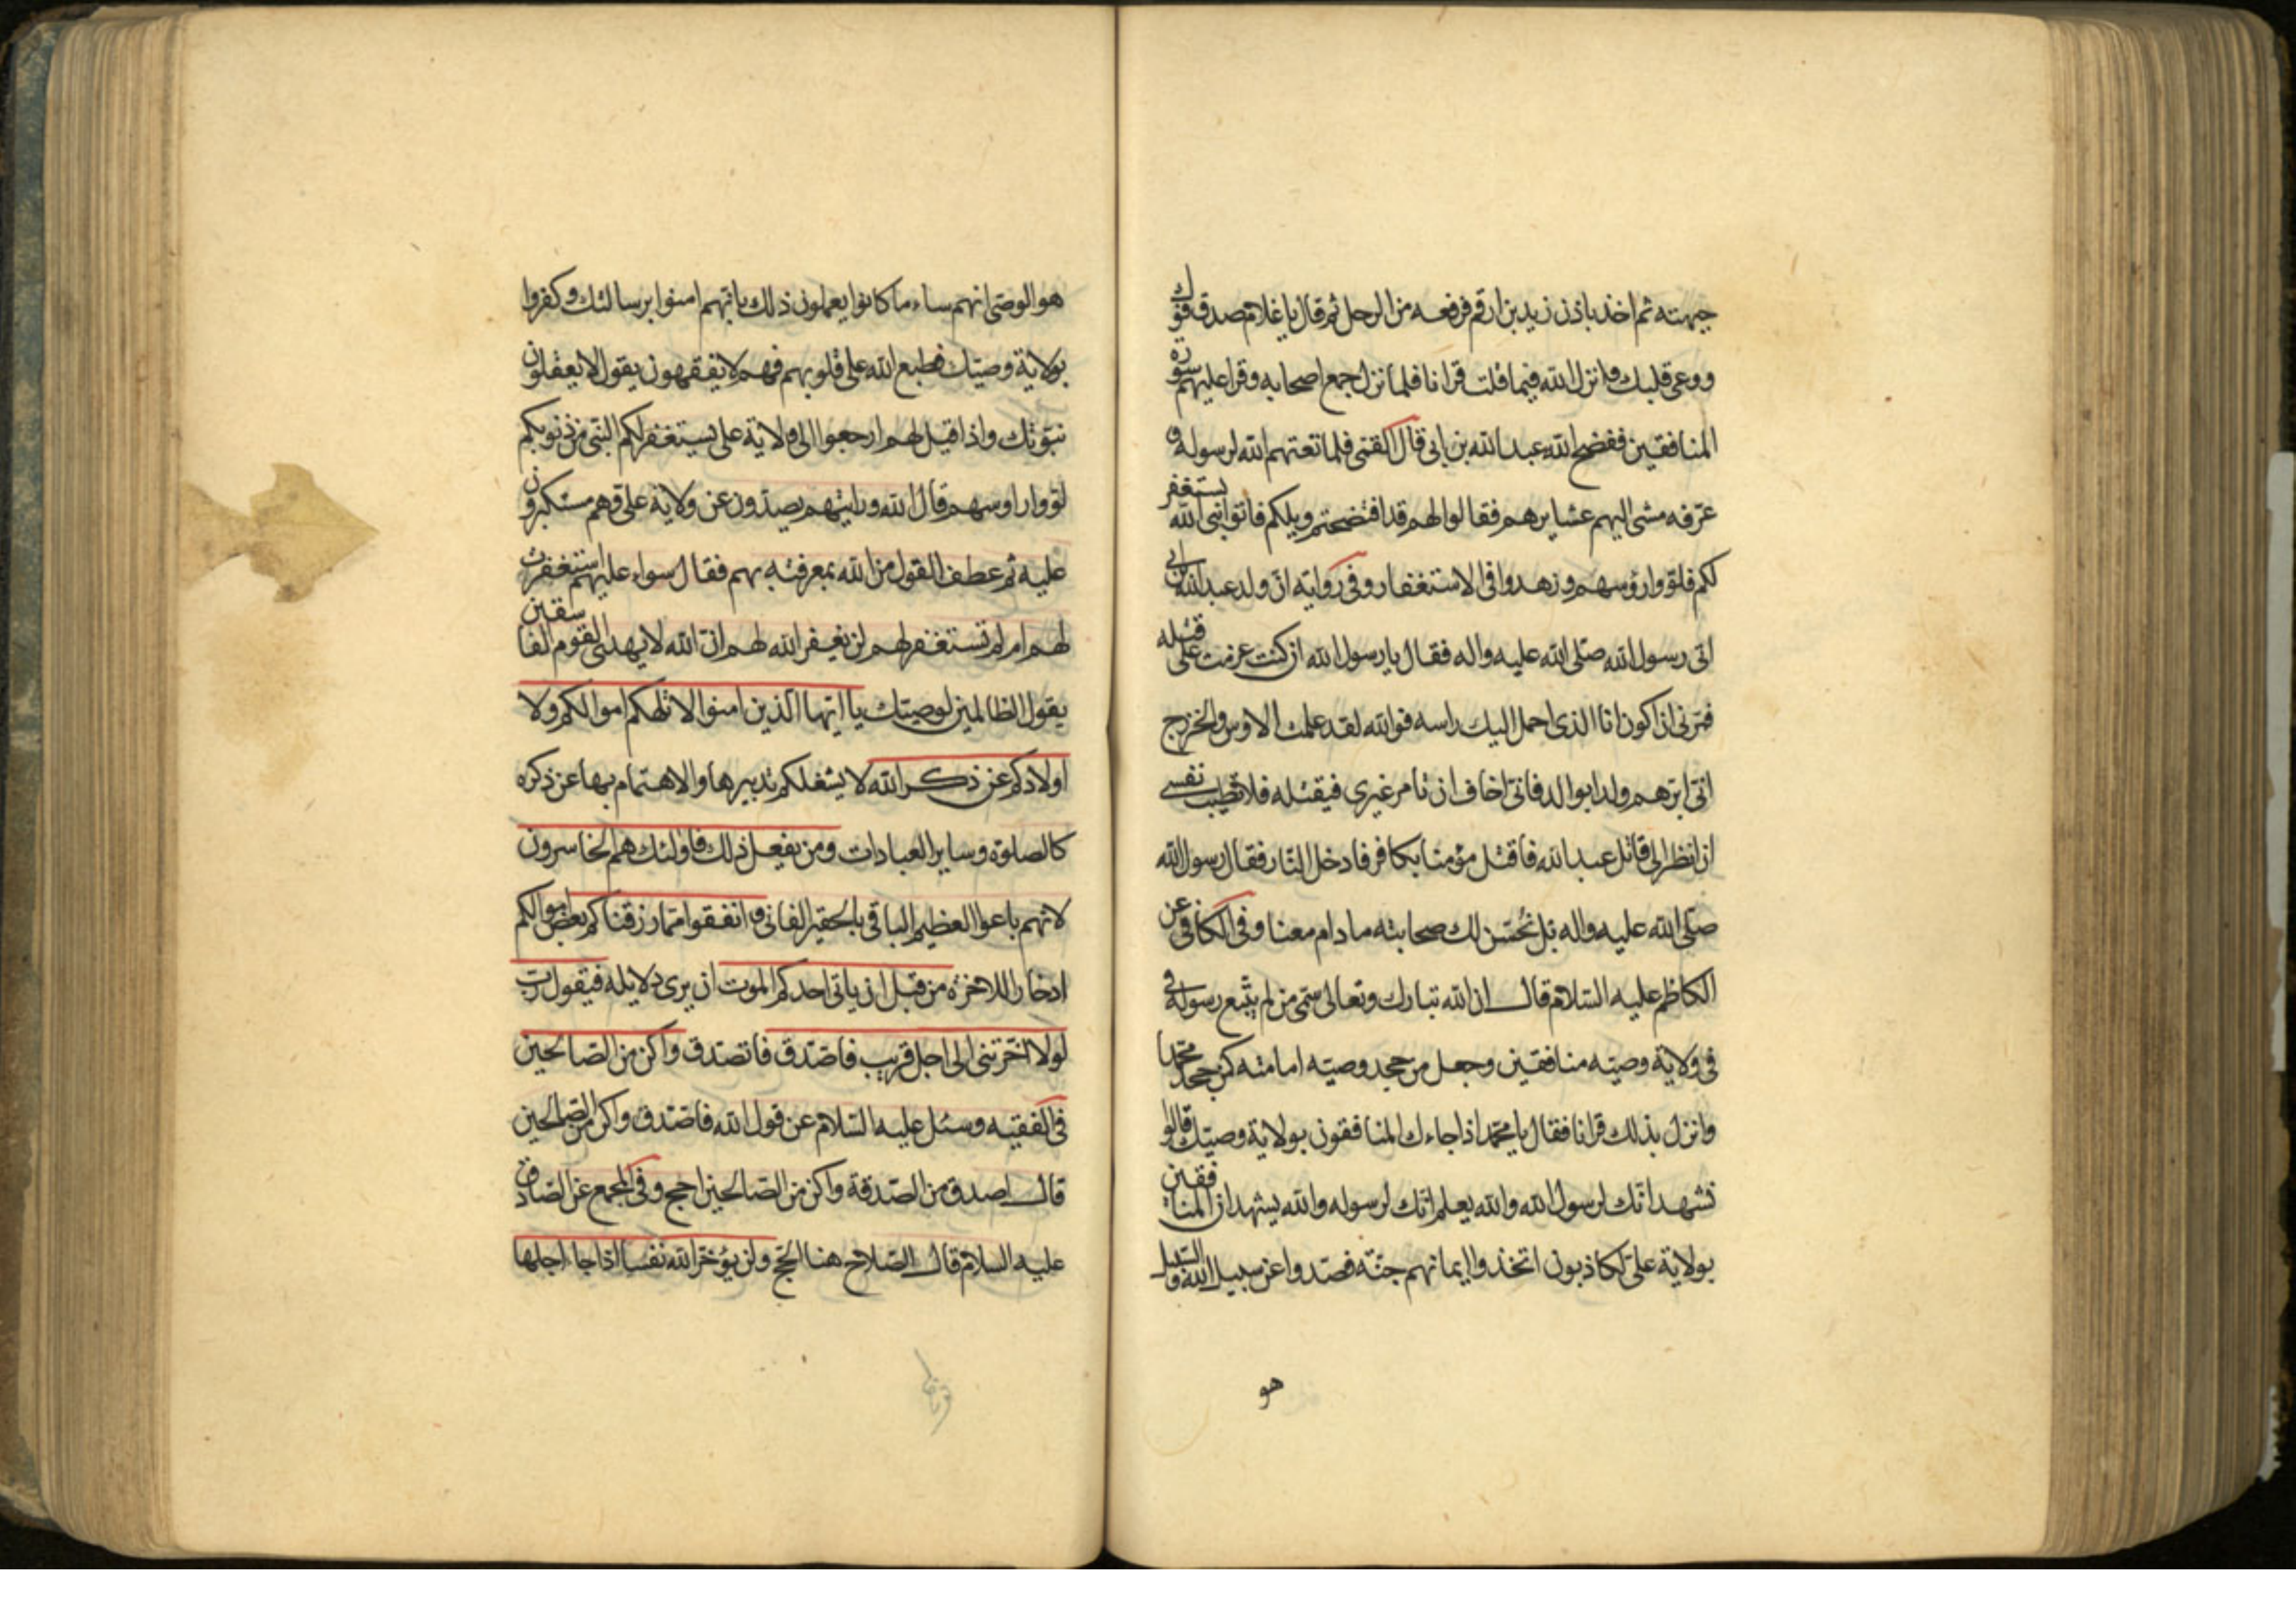 جبهته ثم اخذ باذن زيد بن ارقم فرفعه من الرحل ثم قال يا غلام صدق فوك
ووعى قلبك وانزل الله فيما قلت قرانا فلما نزل جمع اصحابه وقرا عليهم سورة
المنافقين ففضح الله عبد الله بن ابي قال القمي فلما نعتهم الله لرسوله و
عرفه مشى اليهم عشايرهم فقالوا لهم قد افتضحتم ويلكم فاتوا نبي الله يستغفر
لكم فلووا رؤسهم وزهدوا في الاستغفار وفي رواية ان ولد عبد الله بن ابي
اتى رسول الله صلى الله عليه واله فقال يا رسول الله ان كنت عزمت على قتله
فمرني ان اكون انا الذي احمل اليك راسه فوالله لقد علمت الاوس والخزرج
اني ابرهم ولدا بوالد فاني اخاف ان تامر غيري فيقتله فلا تطيب نفسي
ان انظر الى قاتل عبد الله فاقتل مؤمنا بكافر فادخل النار فقال رسول الله
صلى الله عليه واله بل نحسن لك صحابته ما دام معنا وفي الكافي عن
الكاظم عليه السلام قال ان الله تبارك وتعالى سمى من لم يتبع رسوله في
في ولاية وصيه منافقين وجعل من جحد وصيه امامته كمن جحد محمدا
وانزل بذلك قرانا فقال يا محمد اذا جاءك المنافقون بولاية وصيك قالوا
نشهد انك لرسول الله والله يعلم انك لرسوله والله يشهد ان المنافقين
بولاية علي لكاذبون اتخذوا ايمانهم جنة فصدوا عن سبيل الله والسبيل
هو
هو الوصي انهم ساء ما كانوا يعملون ذلك بانهم امنوا برسالتك وكفروا
بولاية وصيك فطبع الله على قلوبهم فهم لا يفقهون يقول لا يعقلون
نبوتك واذا قيل لهم ارجعوا الى ولاية علي يستغفر لكم النبي من ذنوبكم
لووا راوسهم قال الله ورايتهم يصدون عن ولاية علي وهم مستكبرون
عليه ثم عطف القول من الله بمعرفته بهم فقال سواء عليهم استغفرت
لهم ام لم تستغفر لهم لن يغفر الله لهم ان الله لا يهدي القوم الفاسقين
يقول الظالمين لوصيك يا ايها الذين امنوا لا تلهكم اموالكم ولا
اولادكم عن ذكر الله لا يشغلكم تدبيرها والاهتمام بها عن ذكره
كالصلوة وساير العبادات ومن يفعل ذلك فاولئك هم الخاسرون
لانهم باعوا العظيم الباقي بالحقير الفاني وانفقوا مما رزقناكم بعض اموالكم
ادخارا للاخرة من قبل ان ياتي احدكم الموت ان يرى دلايله فيقول رب
لولا اخرتني الى اجل قريب فاصدق فاتصدق واكن من الصالحين
في الفقيه وسئل عليه السلام عن قول الله فاصدق واكن من الصالحين
قال اصدق من الصدقة واكن من الصالحين احج وفي المجمع عن الصادق
عليه السلام قال الصلاح هنا الحج ولن يؤخر الله نفسا اذا جاء اجلها